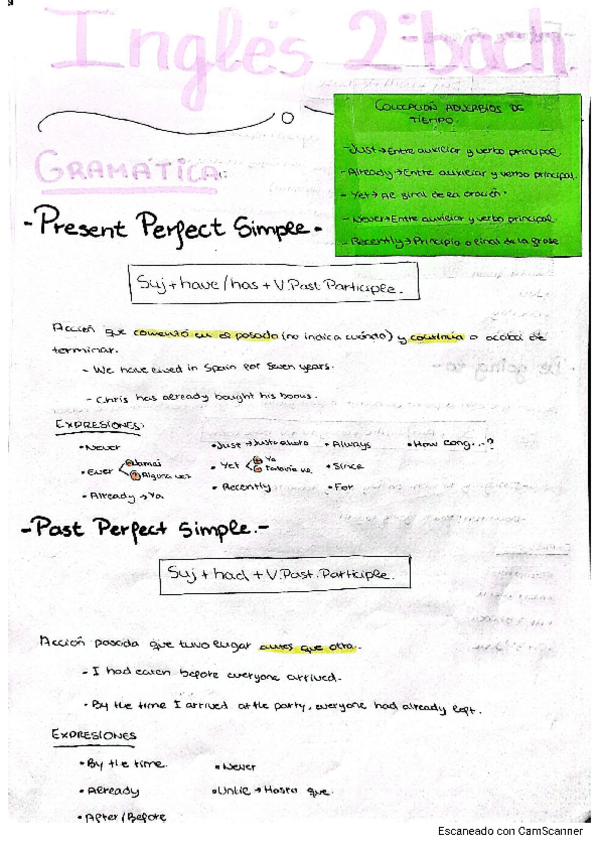 Inglés 2º bach.
COLOCACIÓN ADVERBIOS DE
TIEMPO.
- Just → Entre auxiliar y verbo principal
- Already → Entre auxiliar y verbo principal.
- Yet → Al final de la oración.
- Never → Entre auxiliar y verbo principal.
- Recently → Principio o final de la frase
GRAMÁTICA:
- Present Perfect Simple -
Suj + have / has + V.Past Participle.
Acción que comenzó en el pasado (no indica cuándo) y continúa o acaba de
terminar.
- We have lived in Spain for seven years.
- Chris has already bought his books.
EXPRESIONES:
• Never
• Just → Justo ahora
• Always
• How long...?
• Ever
Jamás
Alguna vez
• Yet
Ya
Todavía no.
• Since
• Already → Ya
• Recently
• For
- Past Perfect Simple. -
Suj + had + V.Past.Participle.
Acción pasada que tuvo lugar antes que otra.
- I had eaten before everyone arrived.
- By the time I arrived at the party, everyone had already left.
EXPRESIONES
• By the time.
• Never
• Already
• Until → Hasta que.
• After / Before
Escaneado con CamScanner